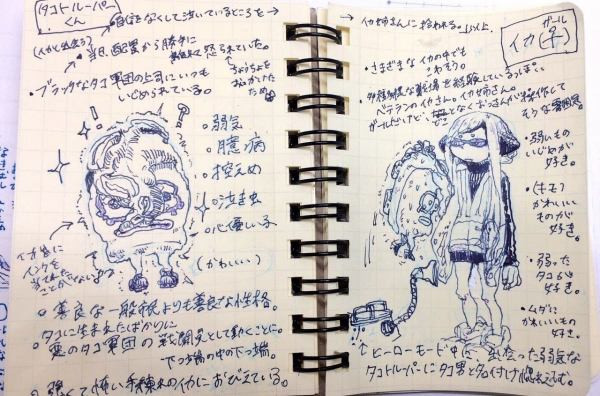 タコトルーパーくん
自信をなくして泣いているところを→
イカ姉さんに拾われる。以上。
(イカと出会う)
当日、配置から勝手に
怒られていた。
ちょうちょを
おいかけた
ため
・ブラックなタコ軍団の上司にいつも
いじめられている。
弱気
臆病
控えめ
泣き虫
心優しい子
(かわいい)
イカ達に
インクを
ことができない
善良な一般市民よりも善良な性格。
タコに生まれたばかりに
悪のタコ軍団の戦闘員として動くことに。
下っ端の中の下っ端。
強くて怖い手練れのイカにおびえている。
イカ(♀)
ガール
・さまざまなイカの中でも
こわそう。
・多種多様な戦場を経験しているっぽい。
ベテランのイカさん。イカ姉さん。
ガールだけど、どことなくおっさんが操作して
そうな雰囲気
・弱いもの
いじめが
好き。
・(キモ)
かわいい
ものが
好き。
・弱った
タコも
好き。
・ムダに
かわいいもの
好き。
↑ヒーローモード中に、出会った弱気な
タコトルーパーにタコ男と名付け